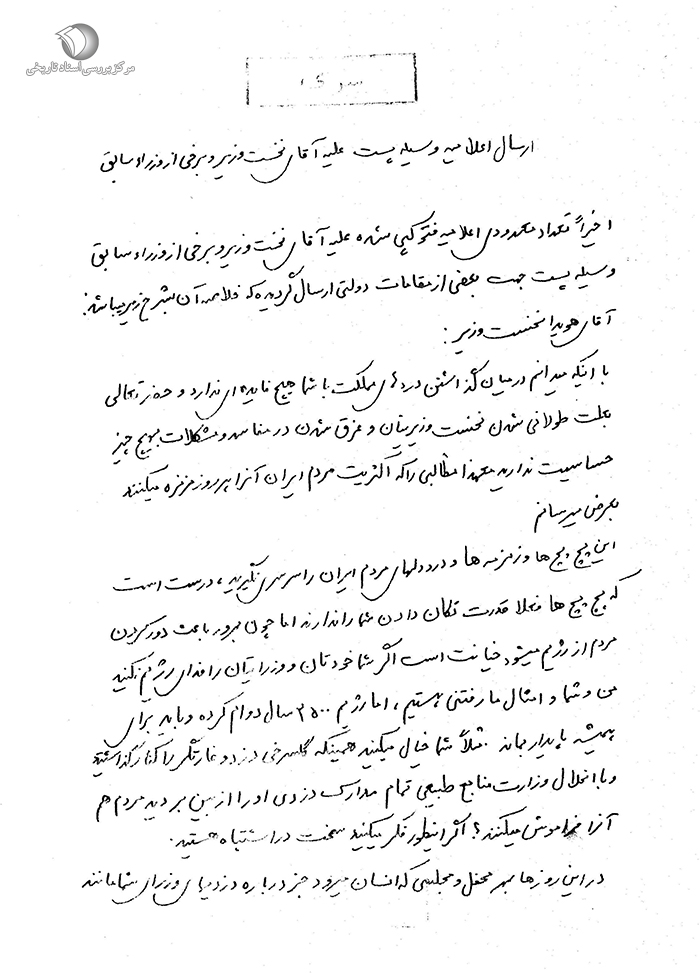 مرکز بررسی اسناد تاریخی
ارسال اعلامیه وسیله پست علیه آقای نخست وزیر و برخی از وزراء سابق
اخیراً تعداد معدودی اعلامیه فتوکپی شده علیه آقای نخست وزیر و برخی از وزراء سابق
وسیله پست جهت بعضی از مقامات دولتی ارسال گردیده که خلاصه آن بشرح زیر میباشد:
آقای هویدا نخست وزیر :
با آنکه میدانم در میان گذاشتن دردهای مملکت با شما هیچ فایده ای ندارد و حضرتعالی
بعلت طولانی شدن نخست وزیریتان و غرق شدن در مفاسد و مشکلات بهیچ چیز
حساسیت ندارید معهذا مطالبی را که اکثریت مردم ایران آنرا هر روز مزمزه میکنند
بعرض میرسانم
این پچ پچ ها و زمزمه ها و درددلهای مردم ایران را سرسری نگیرید ، درست است
که پچ پچ ها فعلا قدرت تکان دادن شما را ندارند اما چون بمرور باعث دور کردن
مردم از رژیم میشود خیانت است اگر شما خودتان و وزرایتان را فدای رژیم نکنید
من و شما و امثال ما رفتنی هستیم ، اما رژیم ۲۵۰۰ سال دوام کرده و باید برای
همیشه پایدار بماند . مثلاً شما خیال میکنید همینکه گلسرخی دزد و غارتگر را کنار گذاشتید
و با انحلال وزارت منابع طبیعی تمام مدارک دزدی او را از بین بردید مردم هم
آنرا فراموش میکنند ؟ اگر اینطور فکر میکنید سخت در اشتباه هستید .
در این روزها بهر محفل و مجلسی که انسان میرود جز درباره دزدیهای وزرای شما مانند